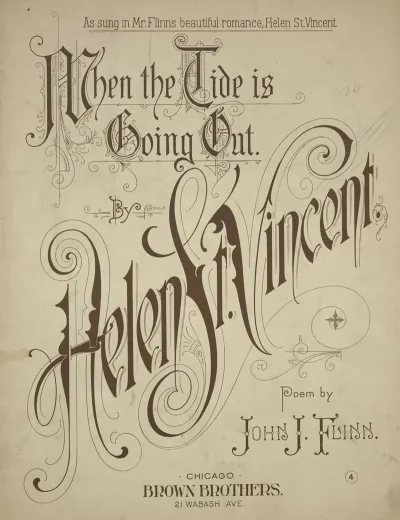 As sung in Mr. Flinn's beautiful romance, Helen St. Vincent.
When the Tide is
Going Out.
By
Helen St. Vincent.
Poem by
JOHN J. FLINN.
· CHICAGO ·
BROWN BROTHERS.
21 WABASH AVE.
4